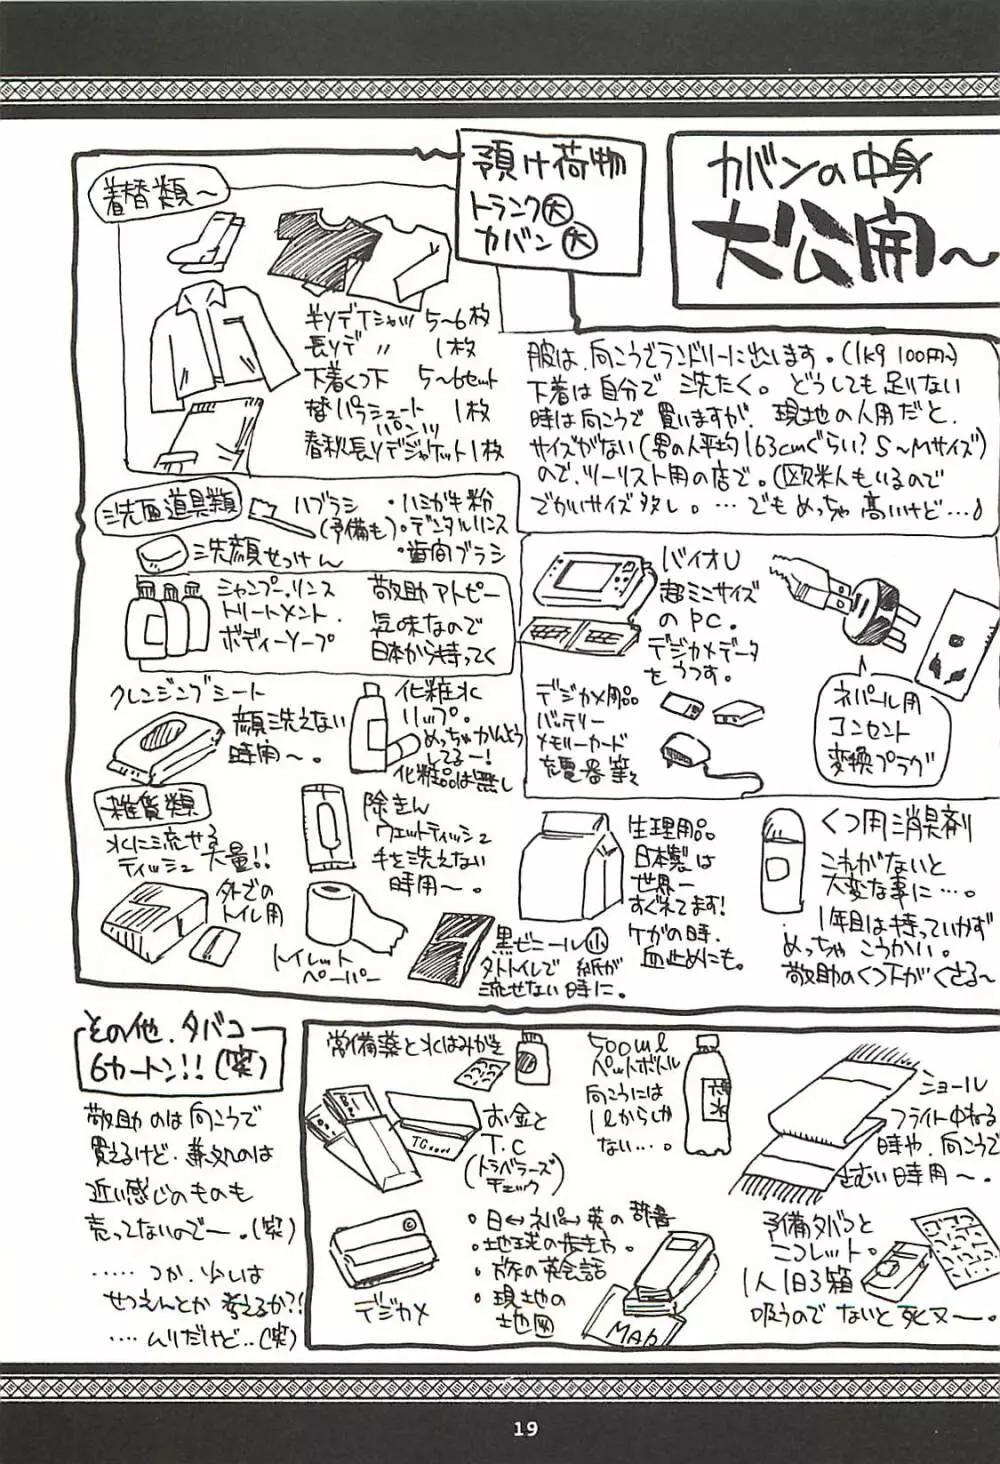 カバンの中身
大公開〜
預け荷物
トランク大
カバン大
着替類〜
半ソデTシャツ 5〜6枚
長ソデ 〃 1枚
下着くつ下 5〜6セット
替パラシュート 1枚
パンツ
春秋長ソデジャケット1枚
服は、向こうでランドリーに出します。(1kg 100円〜)
下着は自分で洗たく。どうしても足りない
時は向こうで買いますが、現地の人用だと、
サイズがない(男の人平均163cmぐらい?S〜Mサイズ)
ので、ツーリスト用の店で。(欧米人もいるので
でかいサイズ多し。…でもめっちゃ高いけど…♪
洗面道具類
ハブラシ
(予備も)
・ハミガキ粉
・デンタルリンス
・歯間ブラシ
洗顔せっけん
シャンプー.リンス
トリートメント.
ボディーソープ
敬助アトピー
気味なので
日本から持ってく
クレンジングシート
顔洗えない
時用〜。
化粧水
リップ。
めっちゃかんそう
してるー!
化粧品は無し
バイオU
超ミニサイズ
のPC。
デジカメデータ
をうつす。
デジカメ用品
バッテリー
メモリーカード
充電器等々
ネパール用
コンセント
変換プラグ
雑貨類
水に流せる
ティッシュ大量!!
外での
トイレ用
除きん
ウェットティッシュ
手を洗えない
時用〜。
トイレット
ペーパー
黒ビニール小
外トイレで紙が
流せない時に。
生理用品
日本製は
世界一
すぐれてます!
ケガの時.
血止めにも。
くつ用消臭剤
これがないと
大変な事に…。
1年目は持っていかず
めっちゃこうかい。
敬助のくつ下がくさる〜
その他.タバコ
6カートン!!(笑)
敬助のは向こうで
買えるけど.兼処のは
近い感じのものも
売ってないのでー.(笑)
……つか.少しは
せつえんとか考えるか?!
….ムリだけど..(笑)
常備薬と水はみがき
お金と
T.C
(トラベラーズ
チェック)
500ml
ペットボトル
向こうには
1lからしか
ない…。
水
ショール
フライト中ねる
時や、向こうで
さむい時用〜.
デジカメ
・日↔ネパ↔英の辞書
・地球の歩き方。
・旅の英会話
・現地の
地図
MAP
予備タバコと
ニコレット。
1人1日3箱
吸うのでないと死ヌ〜。
19